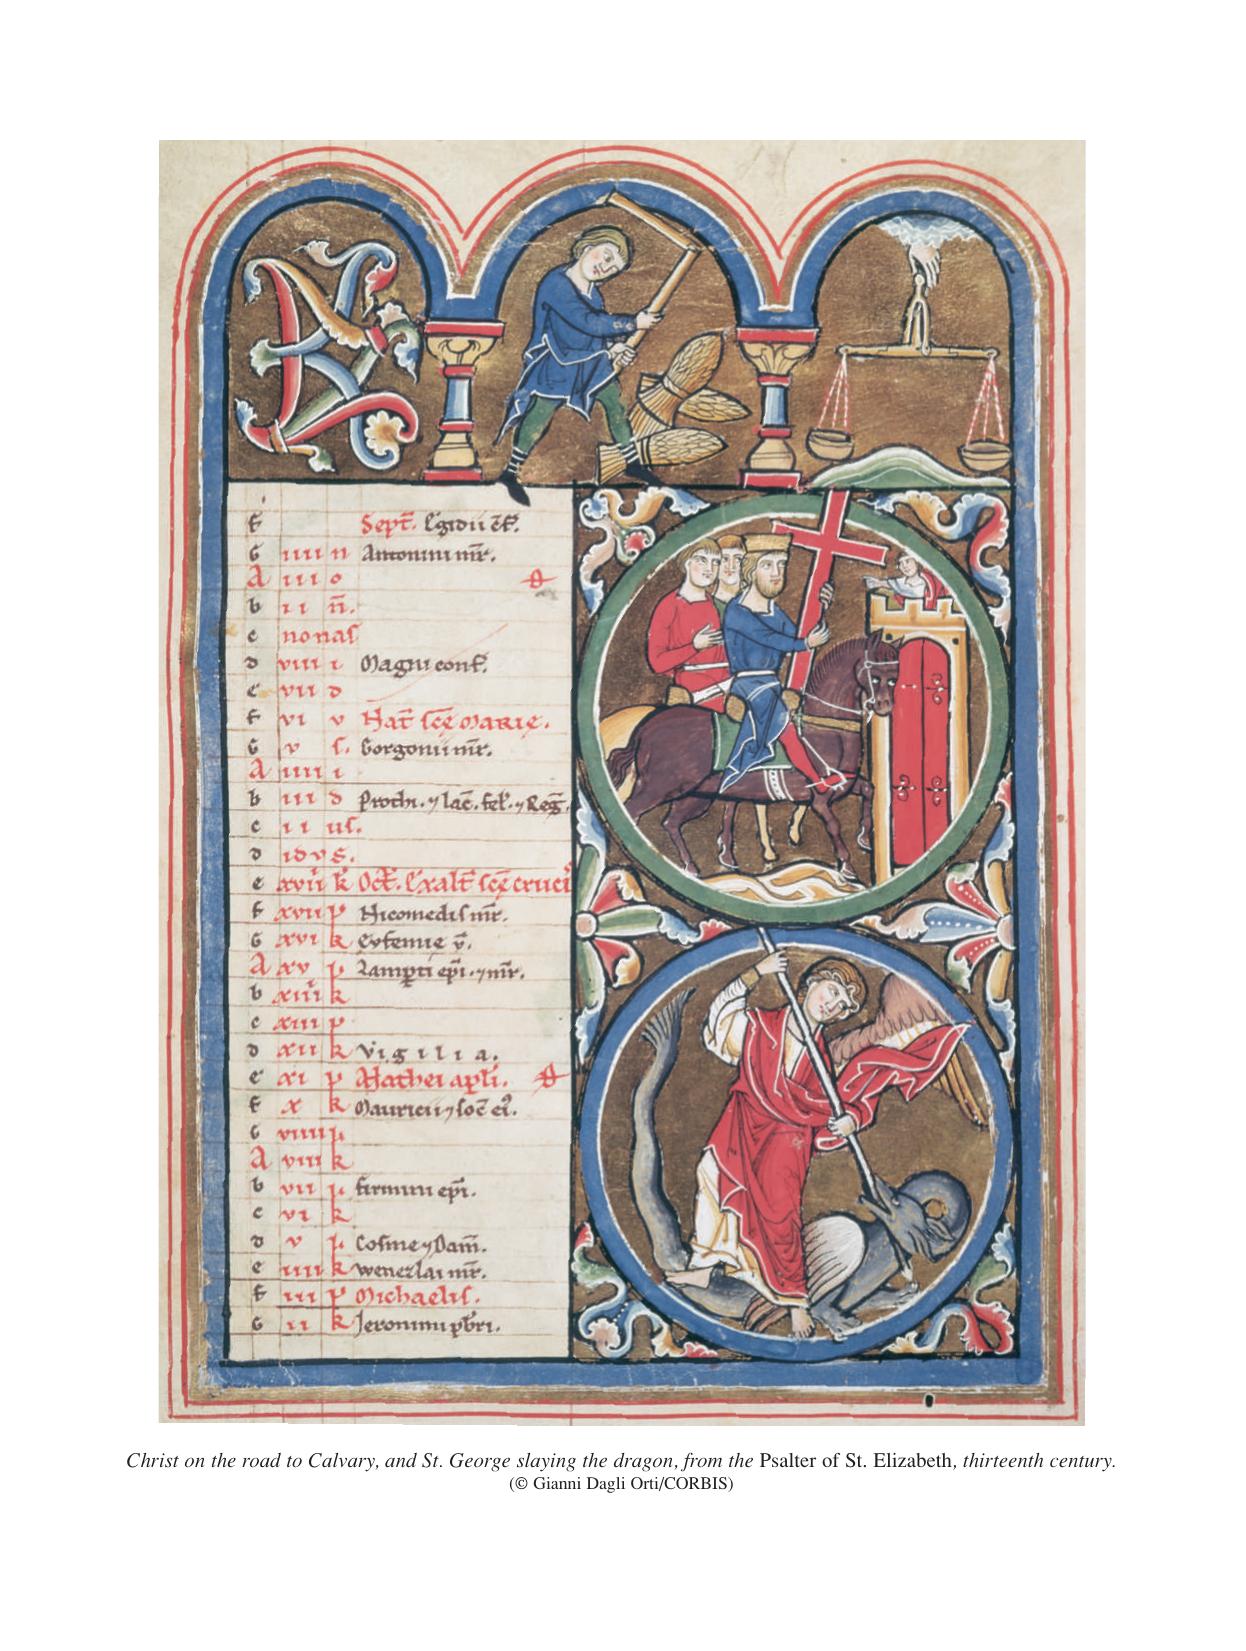 KL
f Sept̄. Egidii c̄f.
G iiii n Antonini mr̄.
A iii o
b ii n̄.
c nonas
d viii i Magni conf̄.
e vii d
f vi v Nat̄ scē Marie.
G v s. Gorgonii mr̄.
A iiii i
b iii d Prothi. ⁊ Iac̄. fel̄. ⁊ Reḡ.
c ii us.
d idvs.
e xviii k Oct̄. Exalt̄ scē crucis
f xvii p Nicomedis mr̄.
G xvi k Eufemie v̄.
A xv p Lamp̄ti ep̄i. ⁊ mr̄.
b xiiii k
c xiii p
d xii k Vigilia.
e xi p Mathei ap̄li.
f x k Mauricii ⁊ soc̄ ei᾽.
G viiii p
A viii k
b vii p firmini ep̄i.
c vi k
d v p Cosme ⁊ Dam̄.
e iiii k wenezlai mr̄.
f iii p Michaelis.
G ii k Jeronimi p̄bri.
Christ on the road to Calvary, and St. George slaying the dragon, from the Psalter of St. Elizabeth, thirteenth century.
(© Gianni Dagli Orti/CORBIS)